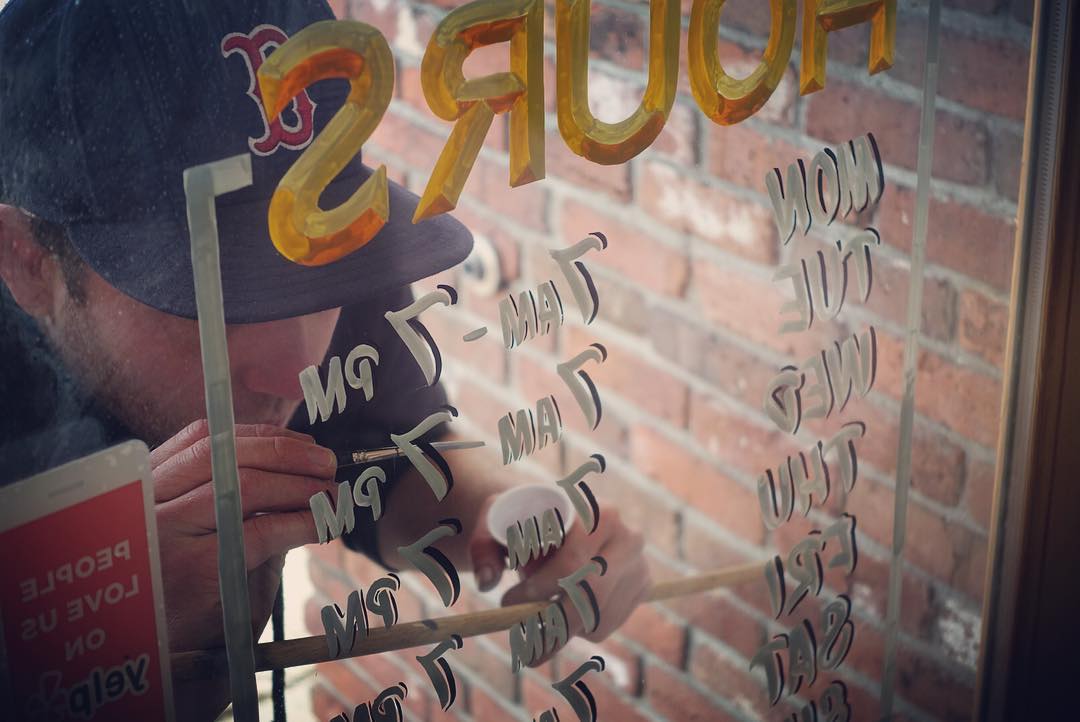 HOURS
MON 7 AM - 7 PM
TUE 7 AM 7 PM
WED 7 AM 7 PM
THU 7 AM 7 PM
FRI 7
SAT
B
PEOPLE
LOVE US
ON
yelp